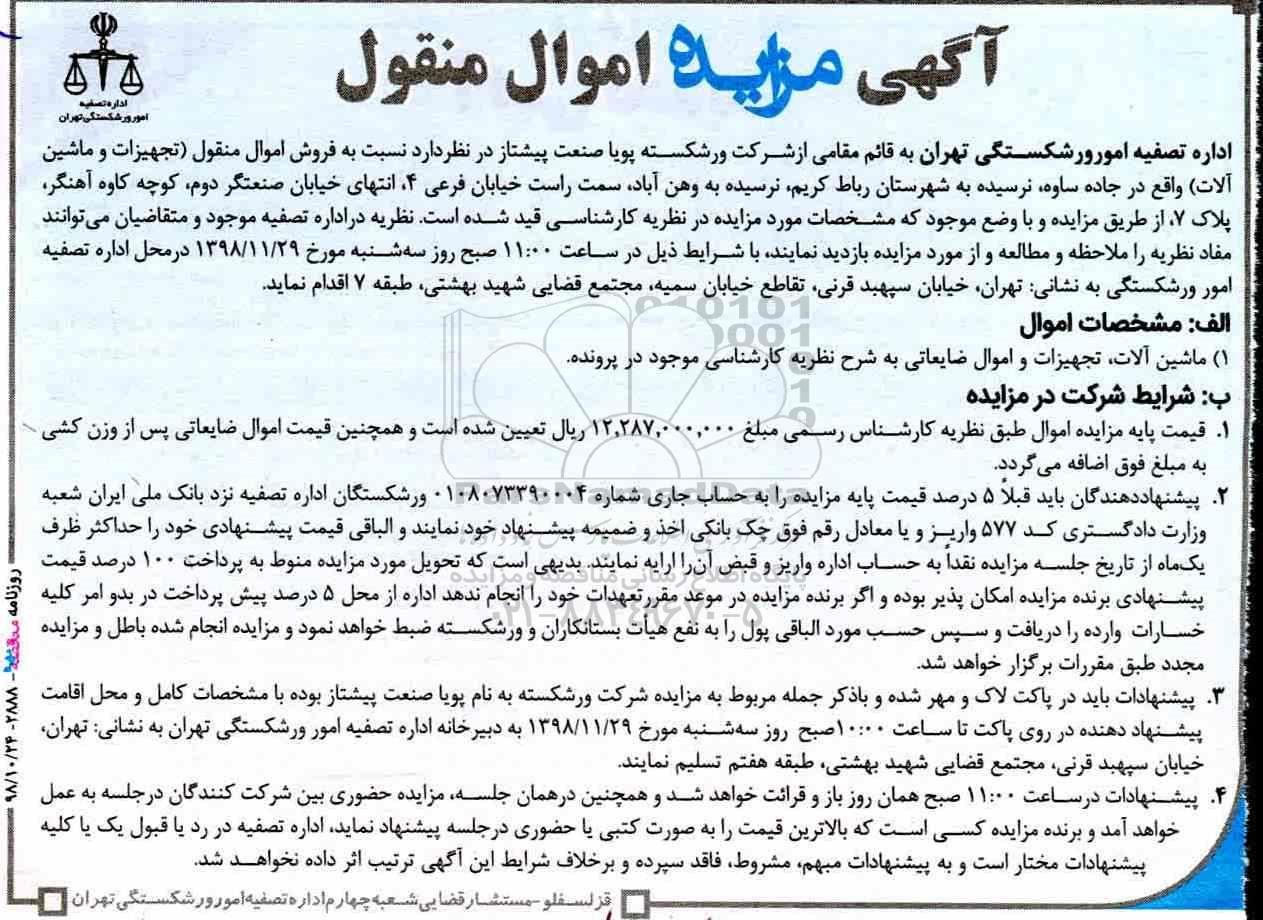 آگهی مزایده اموال منقول
اداره تصفیه
امور ورشکستگی تهران
اداره تصفیه امور ورشکستگی تهران به قائم مقامی از شرکت ورشکسته پویا صنعت پیشتاز در نظر دارد نسبت به فروش اموال منقول (تجهیزات و ماشین
آلات) واقع در جاده ساوه، نرسیده به شهرستان رباط کریم، نرسیده به وهن آباد، سمت راست خیابان فرعی ۴، انتهای خیابان صنعتگر دوم، کوچه کاوه آهنگر،
پلاک ۷، از طریق مزایده و با وضع موجود که مشخصات مورد مزایده در نظریه کارشناسی قید شده است. نظریه در اداره تصفیه موجود و متقاضیان می‌توانند
مفاد نظریه را ملاحظه و مطالعه و از مورد مزایده بازدید نمایند، با شرایط ذیل در ساعت ۱۱:۰۰ صبح روز سه‌شنبه مورخ ۱۳۹۸/۱۱/۲۹ در محل اداره تصفیه
امور ورشکستگی به نشانی: تهران، خیابان سپهبد قرنی، تقاطع خیابان سمیه، مجتمع قضایی شهید بهشتی، طبقه ۷ اقدام نماید.
الف: مشخصات اموال
۱) ماشین آلات، تجهیزات و اموال ضایعاتی به شرح نظریه کارشناسی موجود در پرونده.
ب: شرایط شرکت در مزایده
۱. قیمت پایه مزایده اموال طبق نظریه کارشناس رسمی مبلغ ۱۲,۲۸۷,۰۰۰,۰۰۰ ریال تعیین شده است و همچنین قیمت اموال ضایعاتی پس از وزن کشی
به مبلغ فوق اضافه می‌گردد.
۲. پیشنهاددهندگان باید قبلاً ۵ درصد قیمت پایه مزایده را به حساب جاری شماره ۰۱۰۸۰۷۳۳۹۰۰۰۴ ورشکستگان اداره تصفیه نزد بانک ملی ایران شعبه
وزارت دادگستری کد ۵۷۷ واریز و یا معادل رقم فوق چک بانکی اخذ و ضمیمه پیشنهاد خود نمایند و الباقی قیمت پیشنهادی خود را حداکثر ظرف
یک‌ماه از تاریخ جلسه مزایده نقداً به حساب اداره واریز و قبض آن‌را ارایه نمایند. بدیهی است که تحویل مورد مزایده منوط به پرداخت ۱۰۰ درصد قیمت
پیشنهادی برنده مزایده امکان پذیر بوده و اگر برنده مزایده در موعد مقرر تعهدات خود را انجام ندهد اداره از محل ۵ درصد پیش پرداخت در بدو امر کلیه
خسارات وارده را دریافت و سپس حسب مورد الباقی پول را به نفع هیأت بستانکاران و ورشکسته ضبط خواهد نمود و مزایده انجام شده باطل و مزایده
مجدد طبق مقررات برگزار خواهد شد.
۳. پیشنهادات باید در پاکت لاک و مهر شده و باذکر جمله مربوط به مزایده شرکت ورشکسته به نام پویا صنعت پیشتاز بوده با مشخصات کامل و محل اقامت
پیشنهاد دهنده در روی پاکت تا ساعت ۱۰:۰۰صبح روز سه‌شنبه مورخ ۱۳۹۸/۱۱/۲۹ به دبیرخانه اداره تصفیه امور ورشکستگی تهران به نشانی: تهران،
خیابان سپهبد قرنی، مجتمع قضایی شهید بهشتی، طبقه هفتم تسلیم نمایند.
۴. پیشنهادات در ساعت ۱۱:۰۰ صبح همان روز باز و قرائت خواهد شد و همچنین در همان جلسه، مزایده حضوری بین شرکت کنندگان در جلسه به عمل
خواهد آمد و برنده مزایده کسی است که بالاترین قیمت را به صورت کتبی یا حضوری در جلسه پیشنهاد نماید، اداره تصفیه در رد یا قبول یک یا کلیه
پیشنهادات مختار است و به پیشنهادات مبهم، مشروط، فاقد سپرده و برخلاف شرایط این آگهی ترتیب اثر داده نخواهد شد.
قزلسفلو - مستشار قضایی شعبه چهارم اداره تصفیه امور ورشکستگی تهران
روزنامه مناقصه مزایده - ۲۸۸۸ - ۹۸/۱۰/۲۴
ParsNamadData
پایگاه اطلاع رسانی مناقصه و مزایده
۰۲۱-۸۸۳۴۹۶۷۰-۵